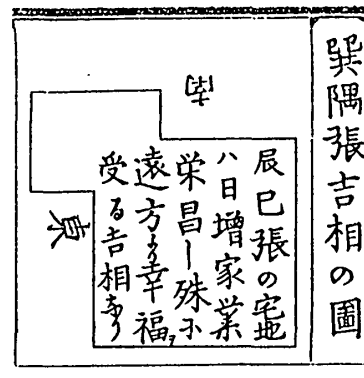 巽隅張吉相の圖
辰巳張の宅地
ハ日増家業
栄昌し殊に
遠方より幸福を
受る吉相なり
南
東